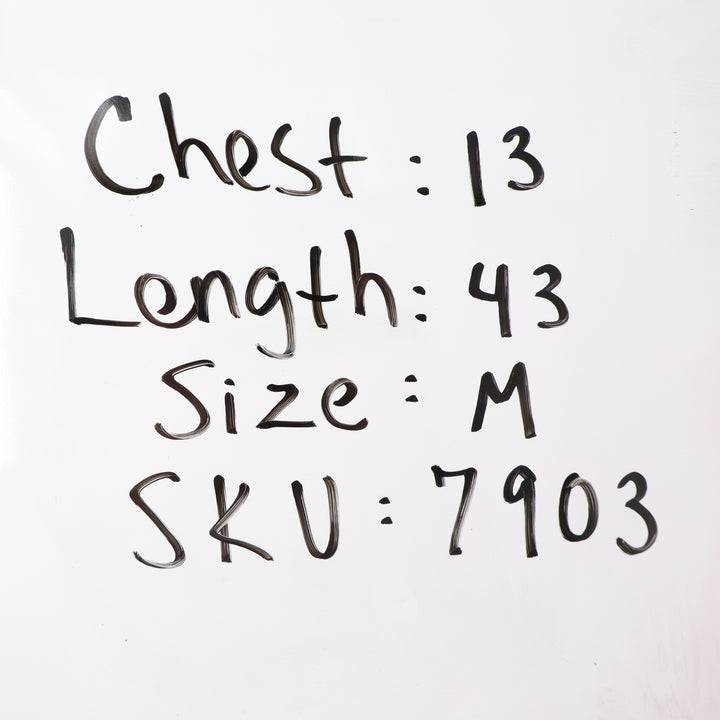 Chest: 13
Length: 43
Size: M
SKU: 7903